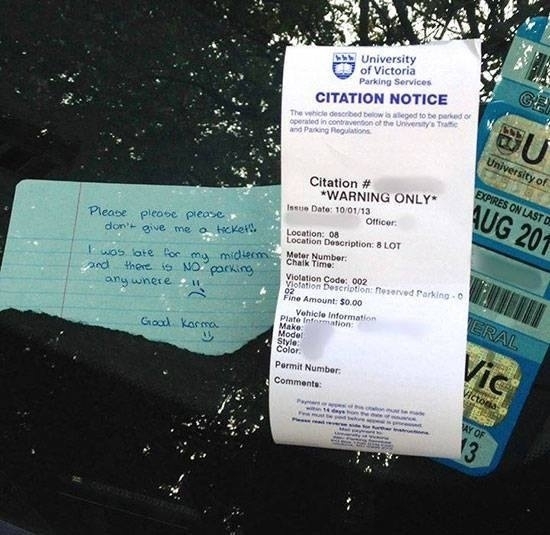 Please please please
don't give me a ticket!!
I was late for my midterm
and there is NO parking
anywhere !!
Good Karma
University
of Victoria
Parking Services
CITATION NOTICE
The vehicle described below is alleged to be parked or
operated in contravention of the University's Traffic
and Parking Regulations.
Citation #
*WARNING ONLY*
Issue Date: 10/01/13
Officer:
Location: 08
Location Description: 8 LOT
Meter Number:
Chalk Time:
Violation Code: 002
Violation Description: Reserved Parking - 0
02
Fine Amount: $0.00
Vehicle Information
Plate Information:
Make:
Model
Style:
Color:
Permit Number:
Comments:
Payment or appeal of this citation must be made
within 14 days from the date of issuance.
Fine must be paid before appeal is processed.
Please read reverse side for further instructions.
Mail payment to:
University of Victoria
GE
U
University of
EXPIRES ON LAST D
AUG 201
ERAL
Vic
Victoria
AY OF
13